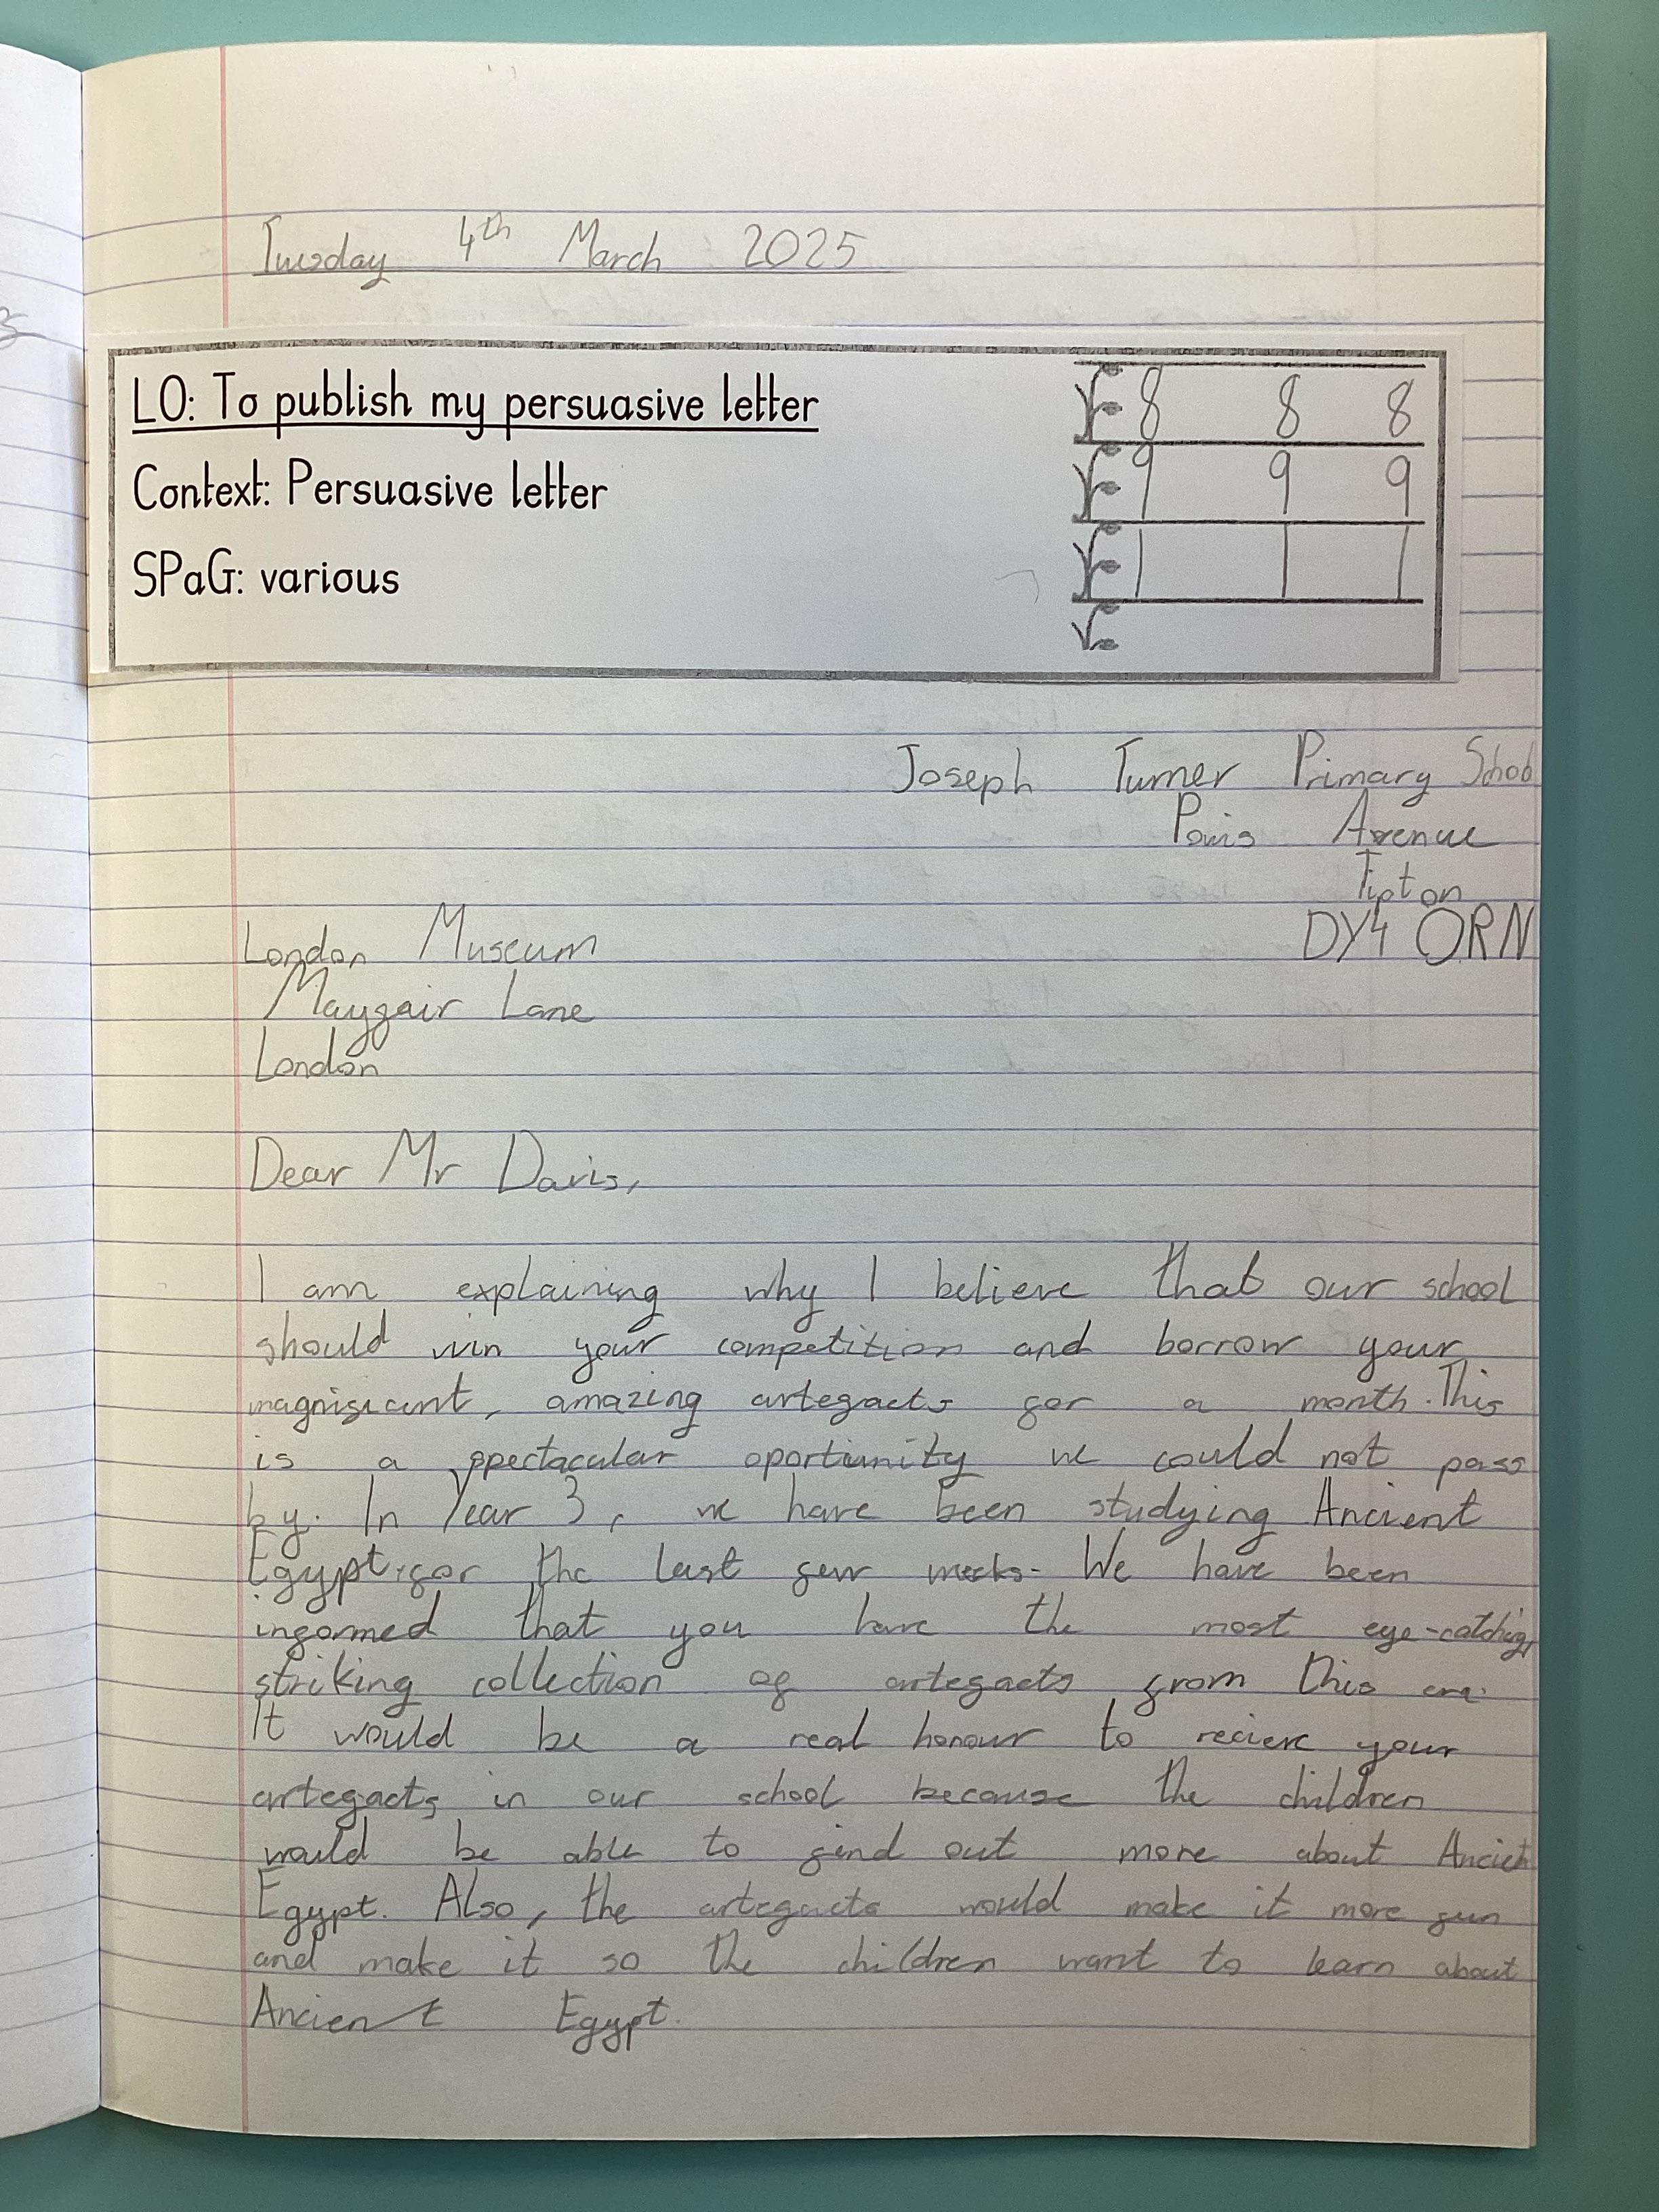 Tuesday 4th March 2025
LO: To publish my persuasive letter
Context: Persuasive letter
SPaG: various
8 8 8
9 9 9
1 1 1
Joseph Turner Primary School
Powis Avenue
Tipton
DY4 0RN
London Museum
Mayfair Lane
London
Dear Mr Davis,
I am explaining why I believe that our school
should win your competition and borrow your
magnificant, amazing artefacts for a month. This
is a spectacular oportunity we could not pass
by. In Year 3, we have been studying Ancient
Egypt for the last few weeks. We have been
informed that you have the most eye-catching,
striking collection of artefacts from this era.
It would be a real honour to recieve your
artefacts in our school because the children
would be able to find out more about Ancient
Egypt. Also, the artefacts would make it more fun
and make it so the children want to learn about
Ancient Egypt.